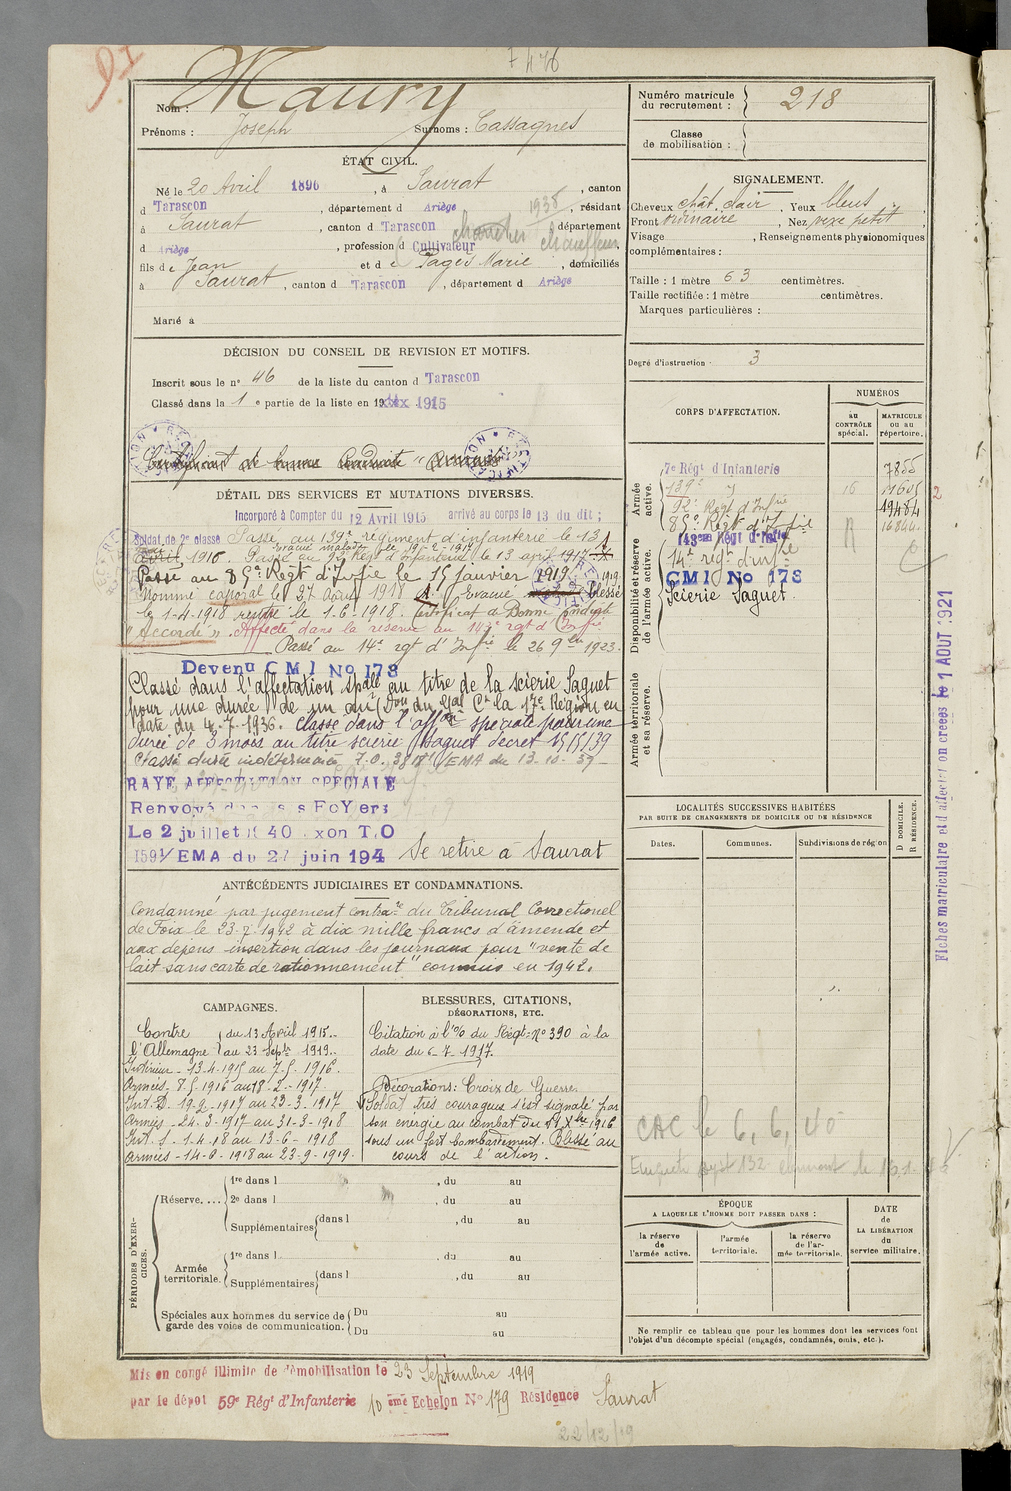 91
7476
Nom : Maury
Prénoms : Joseph Surnoms : Cassagnes
Numéro matricule du recrutement : 218
Classe de mobilisation :
ÉTAT CIVIL.
Né le 20 Avril 1896, à Saurat, canton
d Tarascon, département d Ariège, résidant
à Saurat, canton d Tarascon, département
d Ariège, profession d Cultivateur chauffeur
1938
fils de Jean et de Pagès Marie, domiciliés
à Saurat, canton d Tarascon, département d Ariège
Marié à
SIGNALEMENT.
Cheveux chât. clair, Yeux bleus,
Front ordinaire, Nez vexe petit,
Visage , Renseignements physionomiques
complémentaires :
Taille : 1 mètre 63 centimètres.
Taille rectifiée : 1 mètre centimètres.
Marques particulières :
Degré d'instruction : 3
DÉCISION DU CONSEIL DE REVISION ET MOTIFS.
Inscrit sous le n° 46 de la liste du canton d Tarascon
Classé dans la 1e partie de la liste en 19 1915
Certificat de bonne Conduite "Accordé"
CORPS D'AFFECTATION.
NUMÉROS
au CONTRÔLE spécial.
MATRICULE ou au répertoire.
Armée active.
7e Régt d'Infanterie 7855
139e " 16 11605
92e Régt d'Infie 19484
85e Régt d'Infie 16844
Disponibilité et réserve de l'armée active.
143em Régt d'Infie
14e régt d'infie
CM1 No 178
Scierie Saguet.
Armée territoriale et sa réserve.
DÉTAIL DES SERVICES ET MUTATIONS DIVERSES.
Incorporé à Compter du 12 Avril 1915 arrivé au corps le 13 du dit ;
Soldat de 2e classe Passé au 139e régiment d'infanterie le 13
avril 1916. Passé au 92e Régt d'Infanterie le 13 avril 1917.
Evacué malade le 19-2-1917
Passé au 85e Régt d'Infie le 15 janvier 1919.
Nommé caporal le 27 août 1918 Evacué Blessé
le 1-4-1918 rentré le 1.6.1918. Certificat de Bonne Conduite
"Accordé". Affecté dans la réserve au 143e rgt d'Infie
Passé au 14e rgt d'Infie le 26 9bre 1923.
Devenu CM1 No 178
Classé dans l'affectation spéle au titre de la scierie Saguet
pour une durée de un an (Don du Gal Ct la 17e Région en
date du 4-7-1936. Classé dans l'affon spéciale pour une
durée de 3 mois au titre scierie Saguet décret 15/5/39
Classé durée indéterminée 7.0.3818/EMA du 13-10-39
RAYE AFFECTATION SPECIALE
Renvoyé dans ses FoYers
Le 2 juillet 1940 T.O
1591/EMA du 27 juin 194 Se retire à Saurat
ANTÉCÉDENTS JUDICIAIRES ET CONDAMNATIONS.
Condamné par jugement contre du Tribunal Correctionel
de Foix le 23-7-1942 à dix mille francs d'amende et
aux dépens insertion dans les journaux pour "vente de
lait sans carte de rationnement" commis en 1942.
LOCALITÉS SUCCESSIVES HABITÉES
PAR SUITE DE CHANGEMENTS DE DOMICILE OU DE RÉSIDENCE
Dates. Communes. Subdivisions de région
D DOMICILE. R RÉSIDENCE.
CAMPAGNES.
Contre l'Allemagne du 13 Avril 1915..
au 23 Septe 1919..
Intérieur - 13-4-1915 au 7-5-1916.
Armées - 8-5-1916 au 18-2-1917.
Int. D. 19-2-1917 au 23-3-1917
Armées - 24-3-1917 au 31-3-1918
Int. S. 1.4.18 au 13-6-1918
Armées - 14-6-1918 au 23-9-1919.
BLESSURES, CITATIONS,
DÉCORATIONS, ETC.
Citation à l'O/ du Régt n° 390 à la
date du 6-7-1917.
Décorations : Croix de Guerre.
Soldat très courageux s'est signalé par
son énergie au combat du Xbre 1916
sous un fort bombardement. Blessé au
cours de l'action.
CAC le 6,6,40
PÉRIODES D'EXERCICES.
Réserve.... 1re dans l , du au
2e dans l , du au
Supplémentaires dans l , du au
au
Armée territoriale. 1re dans l , du au
Supplémentaires dans l , du au
Spéciales aux hommes du service de garde des voies de communication. Du au
Du au
ÉPOQUE
A LAQUELLE L'HOMME DOIT PASSER DANS :
la réserve de l'armée active.
l'armée territoriale.
la réserve de l'armée territoriale.
DATE de LA LIBÉRATION du service militaire.
Ne remplir ce tableau que pour les hommes dont les services font
l'objet d'un décompte spécial (engagés, condamnés, omis, etc.).
Fiches matriculaire et d'affectation créées le 1 AOUT 1921
Mis en congé illimité de démobilisation le 23 Septembre 1919
par le dépôt 59e Régt d'Infanterie 10 eme Echelon No 179 Résidence Saurat
22/12/19